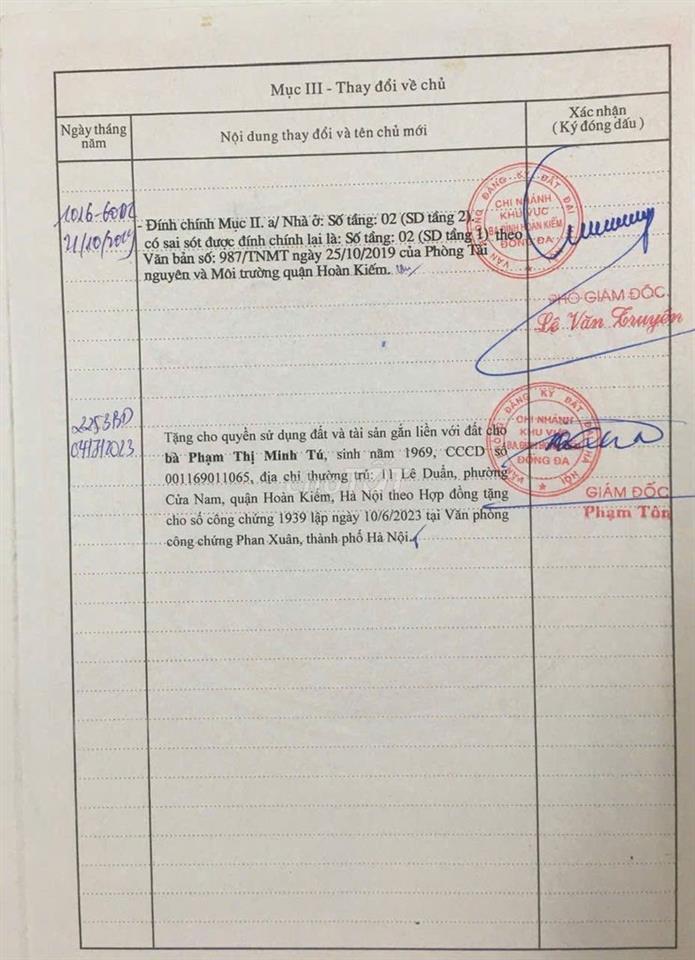 Mục III - Thay đổi về chủ
Ngày tháng năm
Nội dung thay đổi và tên chủ mới
Xác nhận
(Ký đóng dấu)
21/10/2019
- Đính chính Mục II. a/ Nhà ở: Số tầng: 02 (SD tầng 2).
có sai sót được đính chính lại là: Số tầng: 02 (SD tầng 1) theo
Văn bản số: 987/TNMT ngày 25/10/2019 của Phòng Tài
nguyên và Môi trường quận Hoàn Kiếm.
VĂN PHÒNG ĐĂNG KÝ ĐẤT ĐAI
CHI NHÁNH
KHU VỰC
BA ĐÌNH HOÀN KIẾM
ĐỐNG ĐA
PHÓ GIÁM ĐỐC
Lê Văn Truyền
2253BD
04/7/2023
Tặng cho quyền sử dụng đất và tài sản gắn liền với đất cho
bà Phạm Thị Minh Tú, sinh năm 1969, CCCD số
001169011065, địa chỉ thường trú: Lê Duẩn, phường
Cửa Nam, quận Hoàn Kiếm, Hà Nội theo Hợp đồng tặng
cho số công chứng 1939 lập ngày 10/6/2023 tại Văn phòng
công chứng Phan Xuân, thành phố Hà Nội.
VĂN PHÒNG ĐĂNG KÝ ĐẤT ĐAI HÀ NỘI
CHI NHÁNH
KHU VỰC
BA ĐÌNH
ĐỐNG ĐA
GIÁM ĐỐC
Phạm Tôn